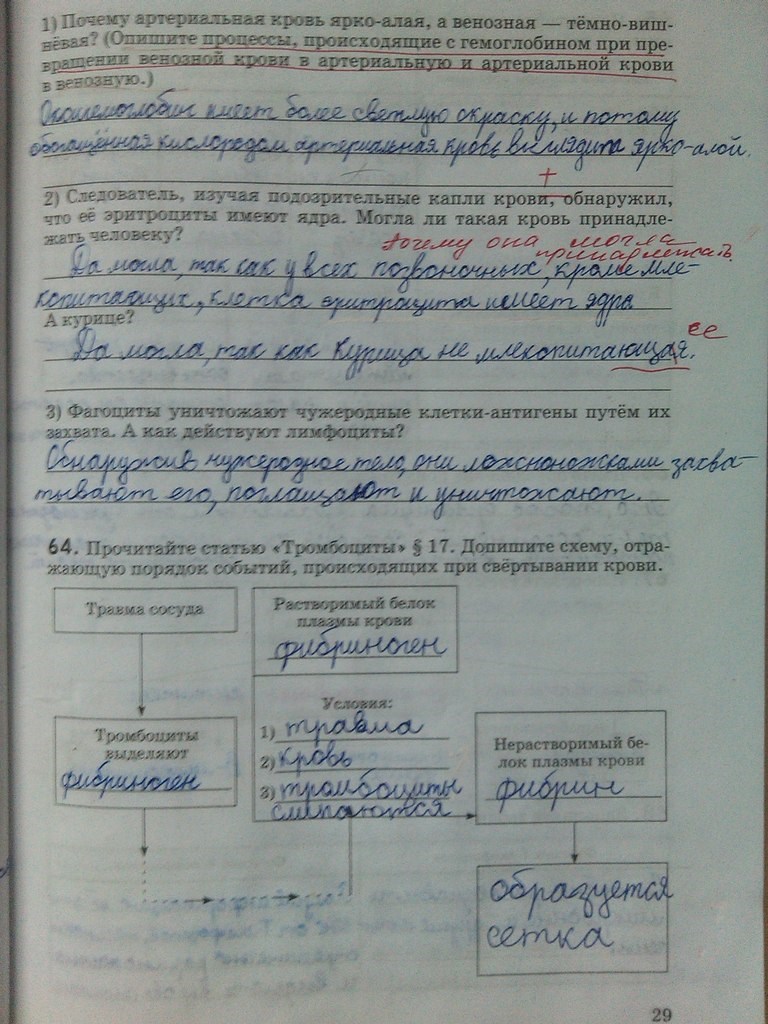 1) Почему артериальная кровь ярко-алая, а венозная — тёмно-виш-
нёвая? (Опишите процессы, происходящие с гемоглобином при пре-
вращении венозной крови в артериальную и артериальной крови
в венозную.)
имеет более светлую окраску, и потому
обогащённая кислородом артериальная кровь выглядит ярко-алой.
+
2) Следователь, изучая подозрительные капли крови, обнаружил,
что её эритроциты имеют ядра. Могла ли такая кровь принадле-
жать человеку?
почему она могла
принадлежать
Да могла, так как у всех позвоночных, кроме мле-
копитающих, клетка эритроцита имеет ядра
А курице?
Да могла, так как курица не млекопитающая.
ее
3) Фагоциты уничтожают чужеродные клетки-антигены путём их
захвата. А как действуют лимфоциты?
Обнаружив чужеродное тело, они ложноножками захва-
тывают его, поглощают и уничтожают.
64. Прочитайте статью «Тромбоциты» § 17. Допишите схему, отра-
жающую порядок событий, происходящих при свёртывании крови.
Травма сосуда
Растворимый белок
плазмы крови
фибриноген
Условия:
1) травма
2) кровь
3) тромбоциты
слипаются
Тромбоциты
выделяют
фибриноген
Нерастворимый бе-
лок плазмы крови
фибрин
образуется
сетка
29